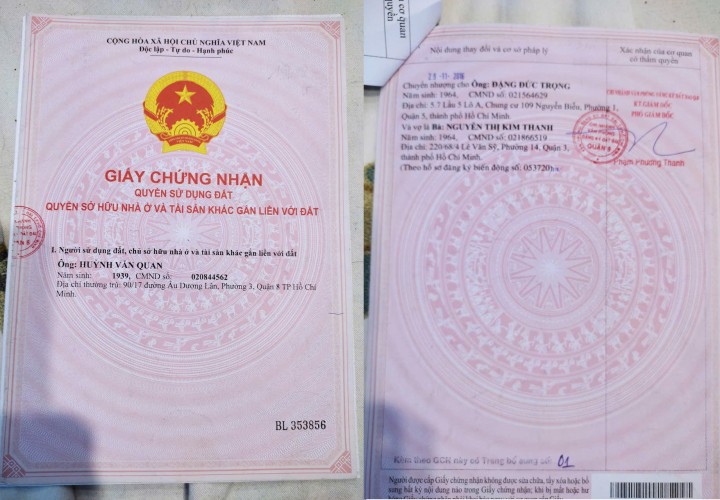 CỘNG HÒA XÃ HỘI CHỦ NGHĨA VIỆT NAM
Độc lập - Tự do - Hạnh phúc
GIẤY CHỨNG NHẬN
QUYỀN SỬ DỤNG ĐẤT
QUYỀN SỞ HỮU NHÀ Ở VÀ TÀI SẢN KHÁC GẮN LIỀN VỚI ĐẤT
I. Người sử dụng đất, chủ sở hữu nhà ở và tài sản khác gắn liền với đất
Ông: HUỲNH VĂN QUAN
Năm sinh: 1939, CMND số: 020844562
Địa chỉ thường trú: 90/17 đường Âu Dương Lân, Phường 3, Quận 8 TP Hồ Chí
Minh.
BL 353856
cơ quan
quyền
Nội dung thay đổi và cơ sở pháp lý
Xác nhận của cơ quan
có thẩm quyền
Chuyển nhượng cho Ông: ĐẶNG ĐỨC TRỌNG
Năm sinh: 1964, CMND số: 021564629
Địa chỉ: 5.7 Lầu 5 Lô A, Chung cư 109 Nguyễn Biểu, Phường 1,
Quận 5, thành phố Hồ Chí Minh.
Và vợ là Bà: NGUYỄN THỊ KIM THANH
Năm sinh: 1964, CMND số: 021866519
Địa chỉ: 220/68/4 Lê Văn Sỹ, Phường 14, Quận 3,
thành phố Hồ Chí Minh.
(Theo hồ sơ đăng ký biến động số: 053720)
KT.GIÁM ĐỐC
PHÓ GIÁM ĐỐC
QUẬN 8
Phạm Phương Thanh
Kèm theo GCN này có Trang bổ sung số: 01
Người được cấp Giấy chứng nhận không được sửa chữa, tẩy xóa hoặc bổ
sung bất kỳ nội dung nào trong Giấy chứng nhận; khi bị mất hoặc hư